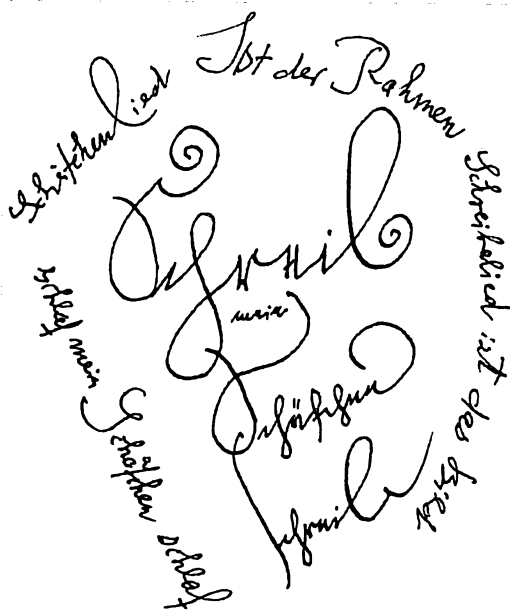 Schäfchenlied
Ist der Rahmen
Schreibelied ist das Bild
schlaf mein Schäfchen schlaf
Schreib
mein
Schäfchen
schreib